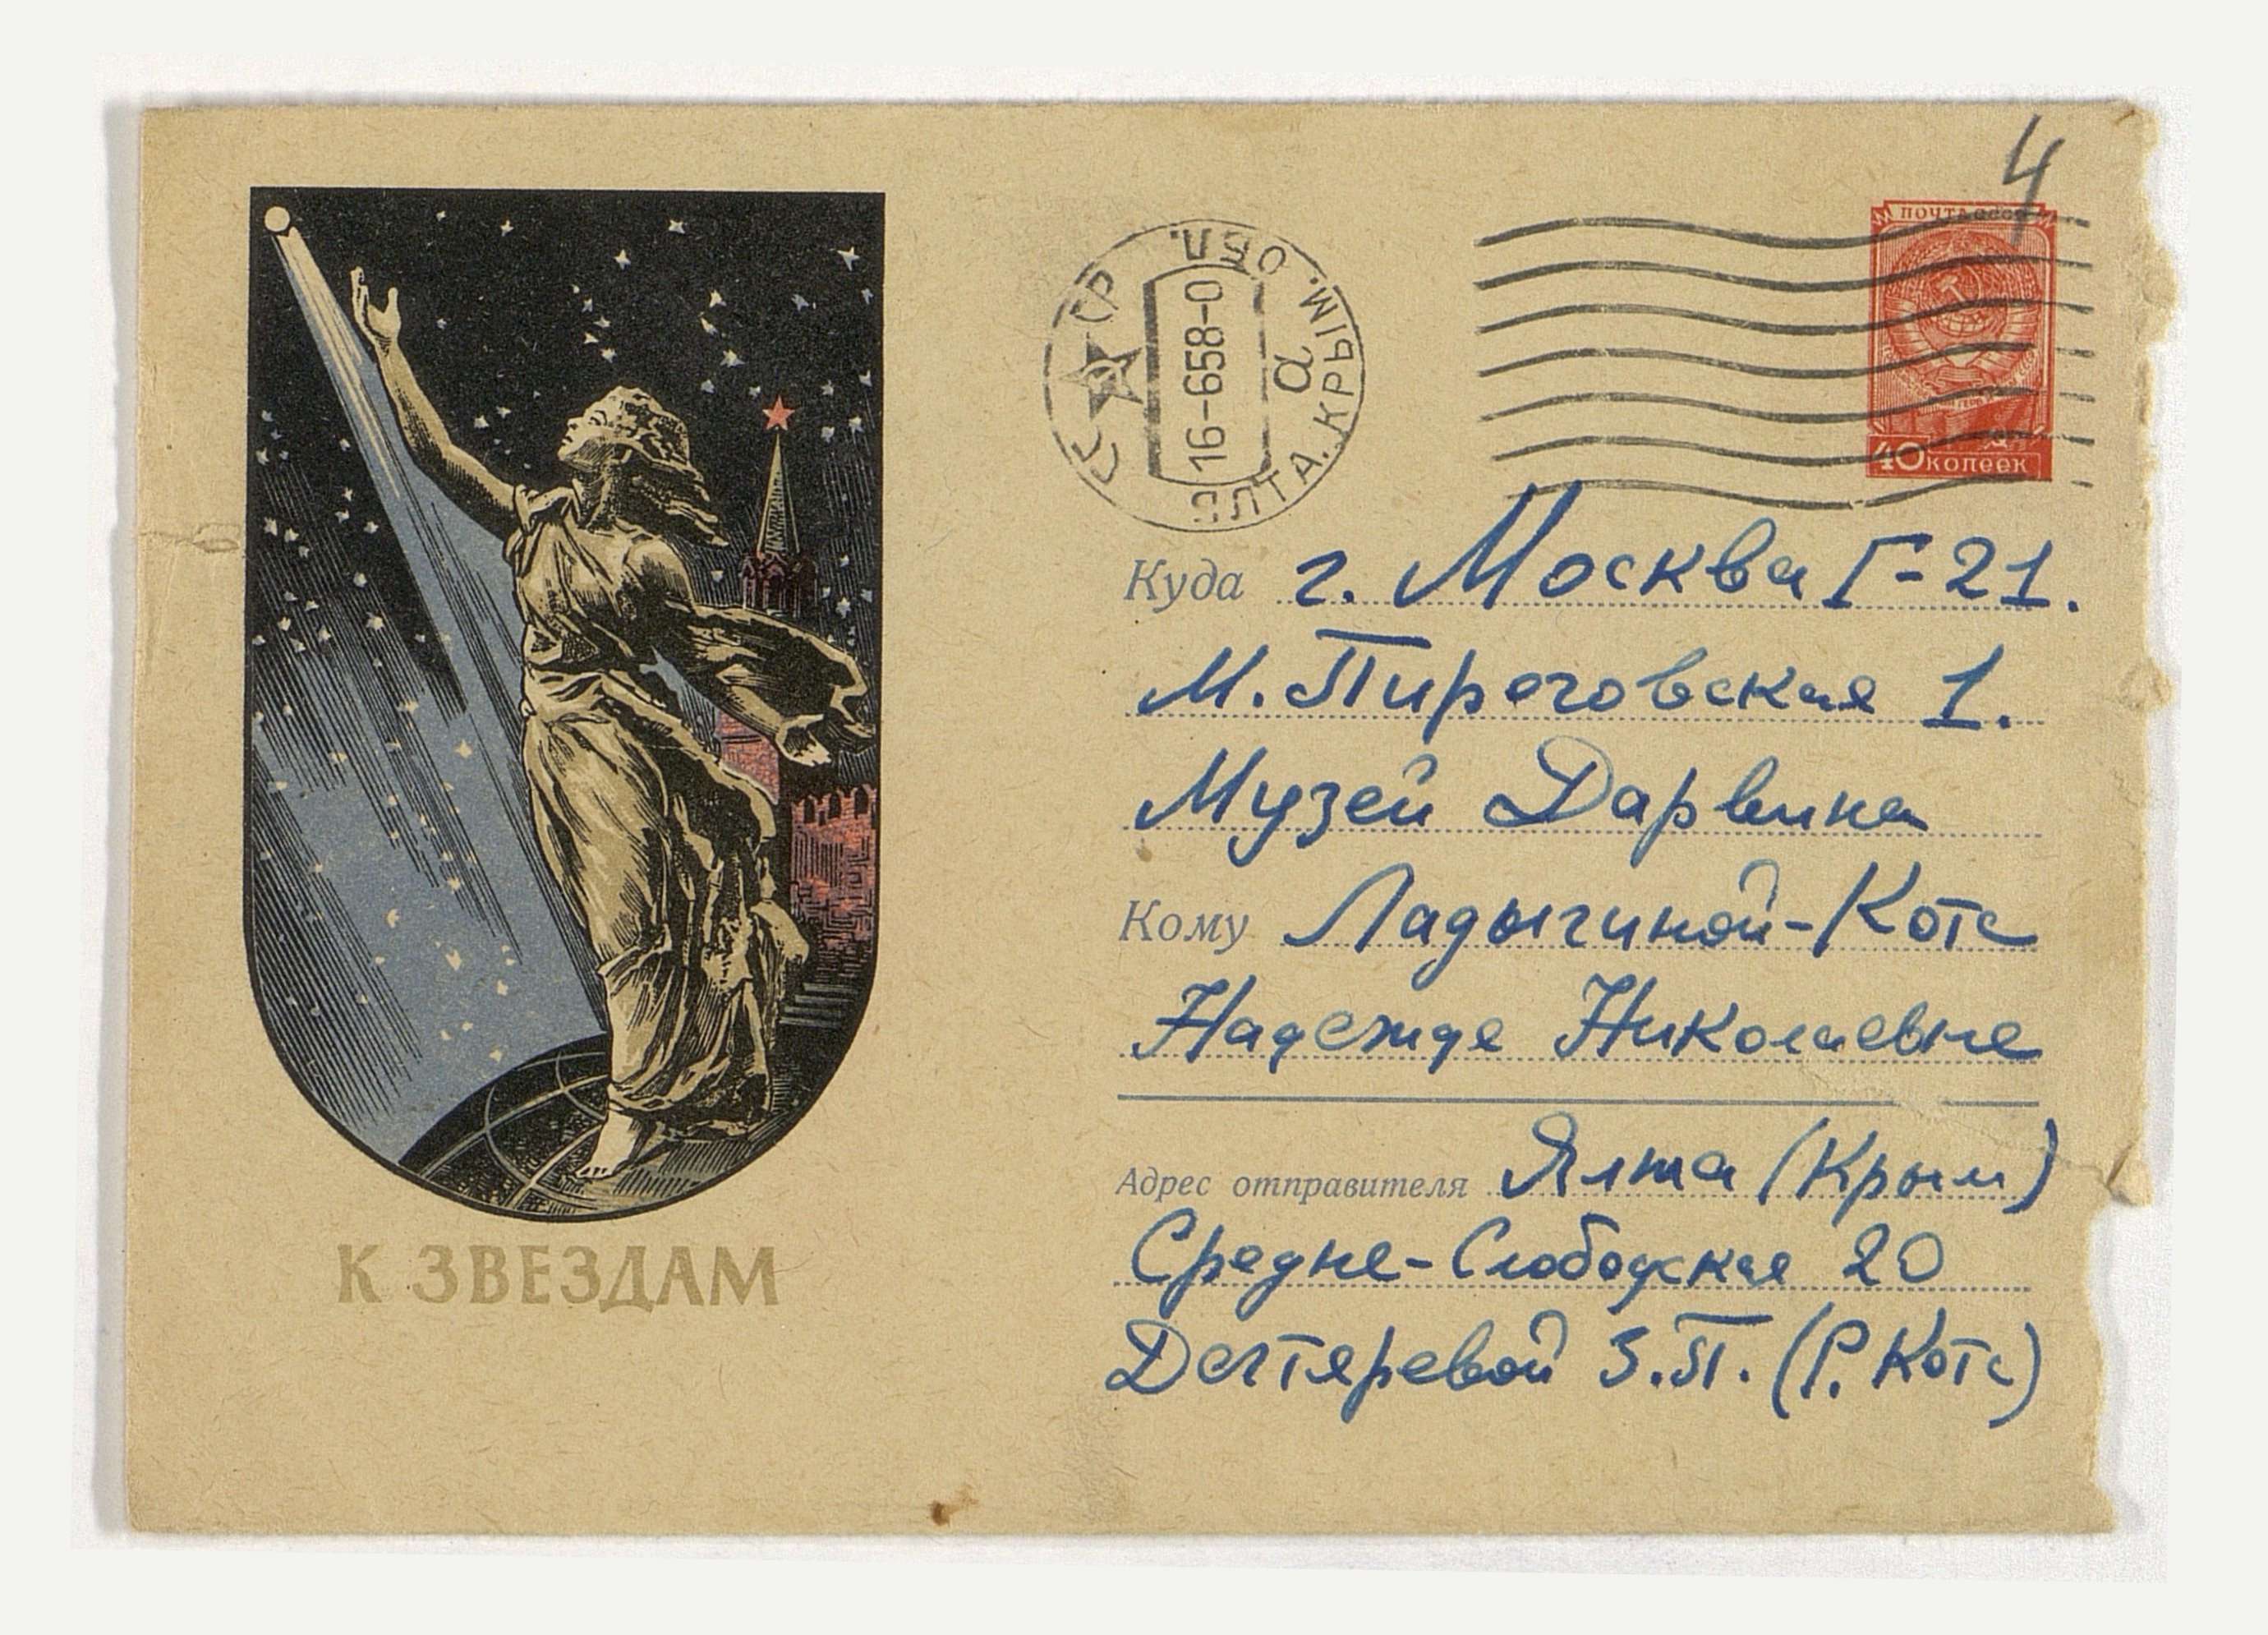 4
ПОЧТА СССР
40 копеек
СССР
ЯЛТА. КРЫМ. ОБЛ.
16-658-0
а
Куда г. Москва Г-21.
М. Пироговская 1.
Музей Дарвина
Кому Ладыгиной-Котс
Надежде Николаевне
Адрес отправителя Ялта (Крым)
Средне-Слободская 20
Дегтяревой З.П. (Р. Котс)
К ЗВЕЗДАМ